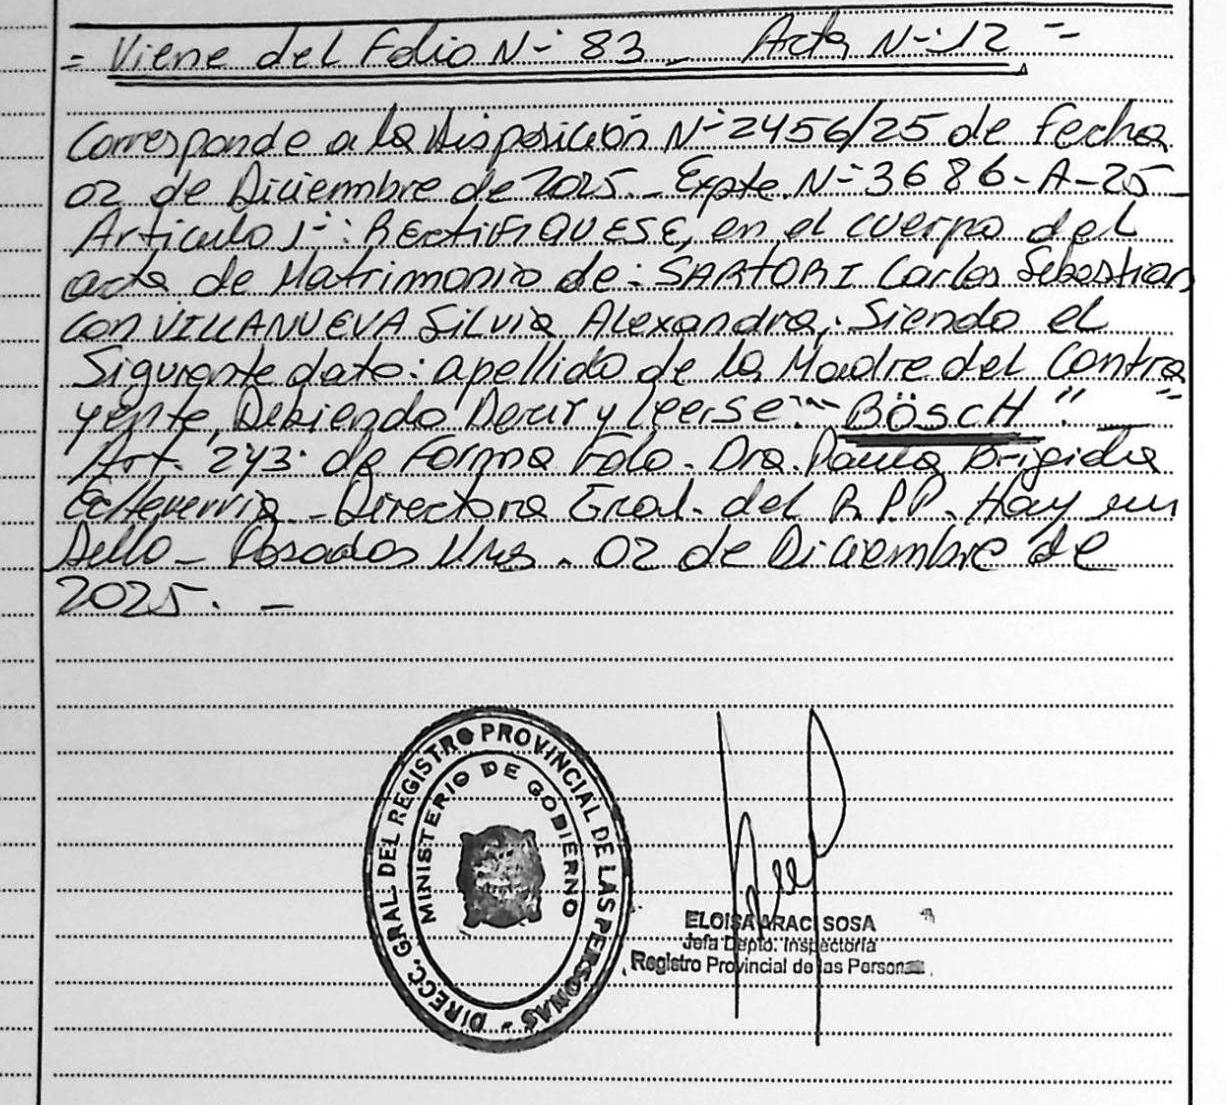 = Viene del Folio N-° 83 _ Acta N-° 12 =
Corresponde a la Disposición N-° 2456/25 de fecha
02 de Diciembre de 2025._ Expte. N-° 3686-A-25_
Articulo 1-°: RECtiFIQUESE, en el cuerpo del
acta de Matrimonio de: SARTORI Carlos Sebastian
con VILLANUEVA Silvia Alexandra,: Siendo el
Siguiente dato: apellido de la Madre del Contra
yente, Debiendo Decir y leerse "BÖSCH" _ =
Art. 2y3. de Forma Fdo. Dra. Paula Brigida
Echeverria _ Directora Gral. del R.P.P. Hay un
Sello _ Posadas Mns. 02 de Diciembre de
2025. _
DIRECC. GRAL. DEL REGISTRO PROVINCIAL DE LAS PERSONAS -
MINISTERIO DE GOBIERNO
ELOISA ARACI SOSA
Jefa Depto. Inspectoria
Registro Provincial de las Personas